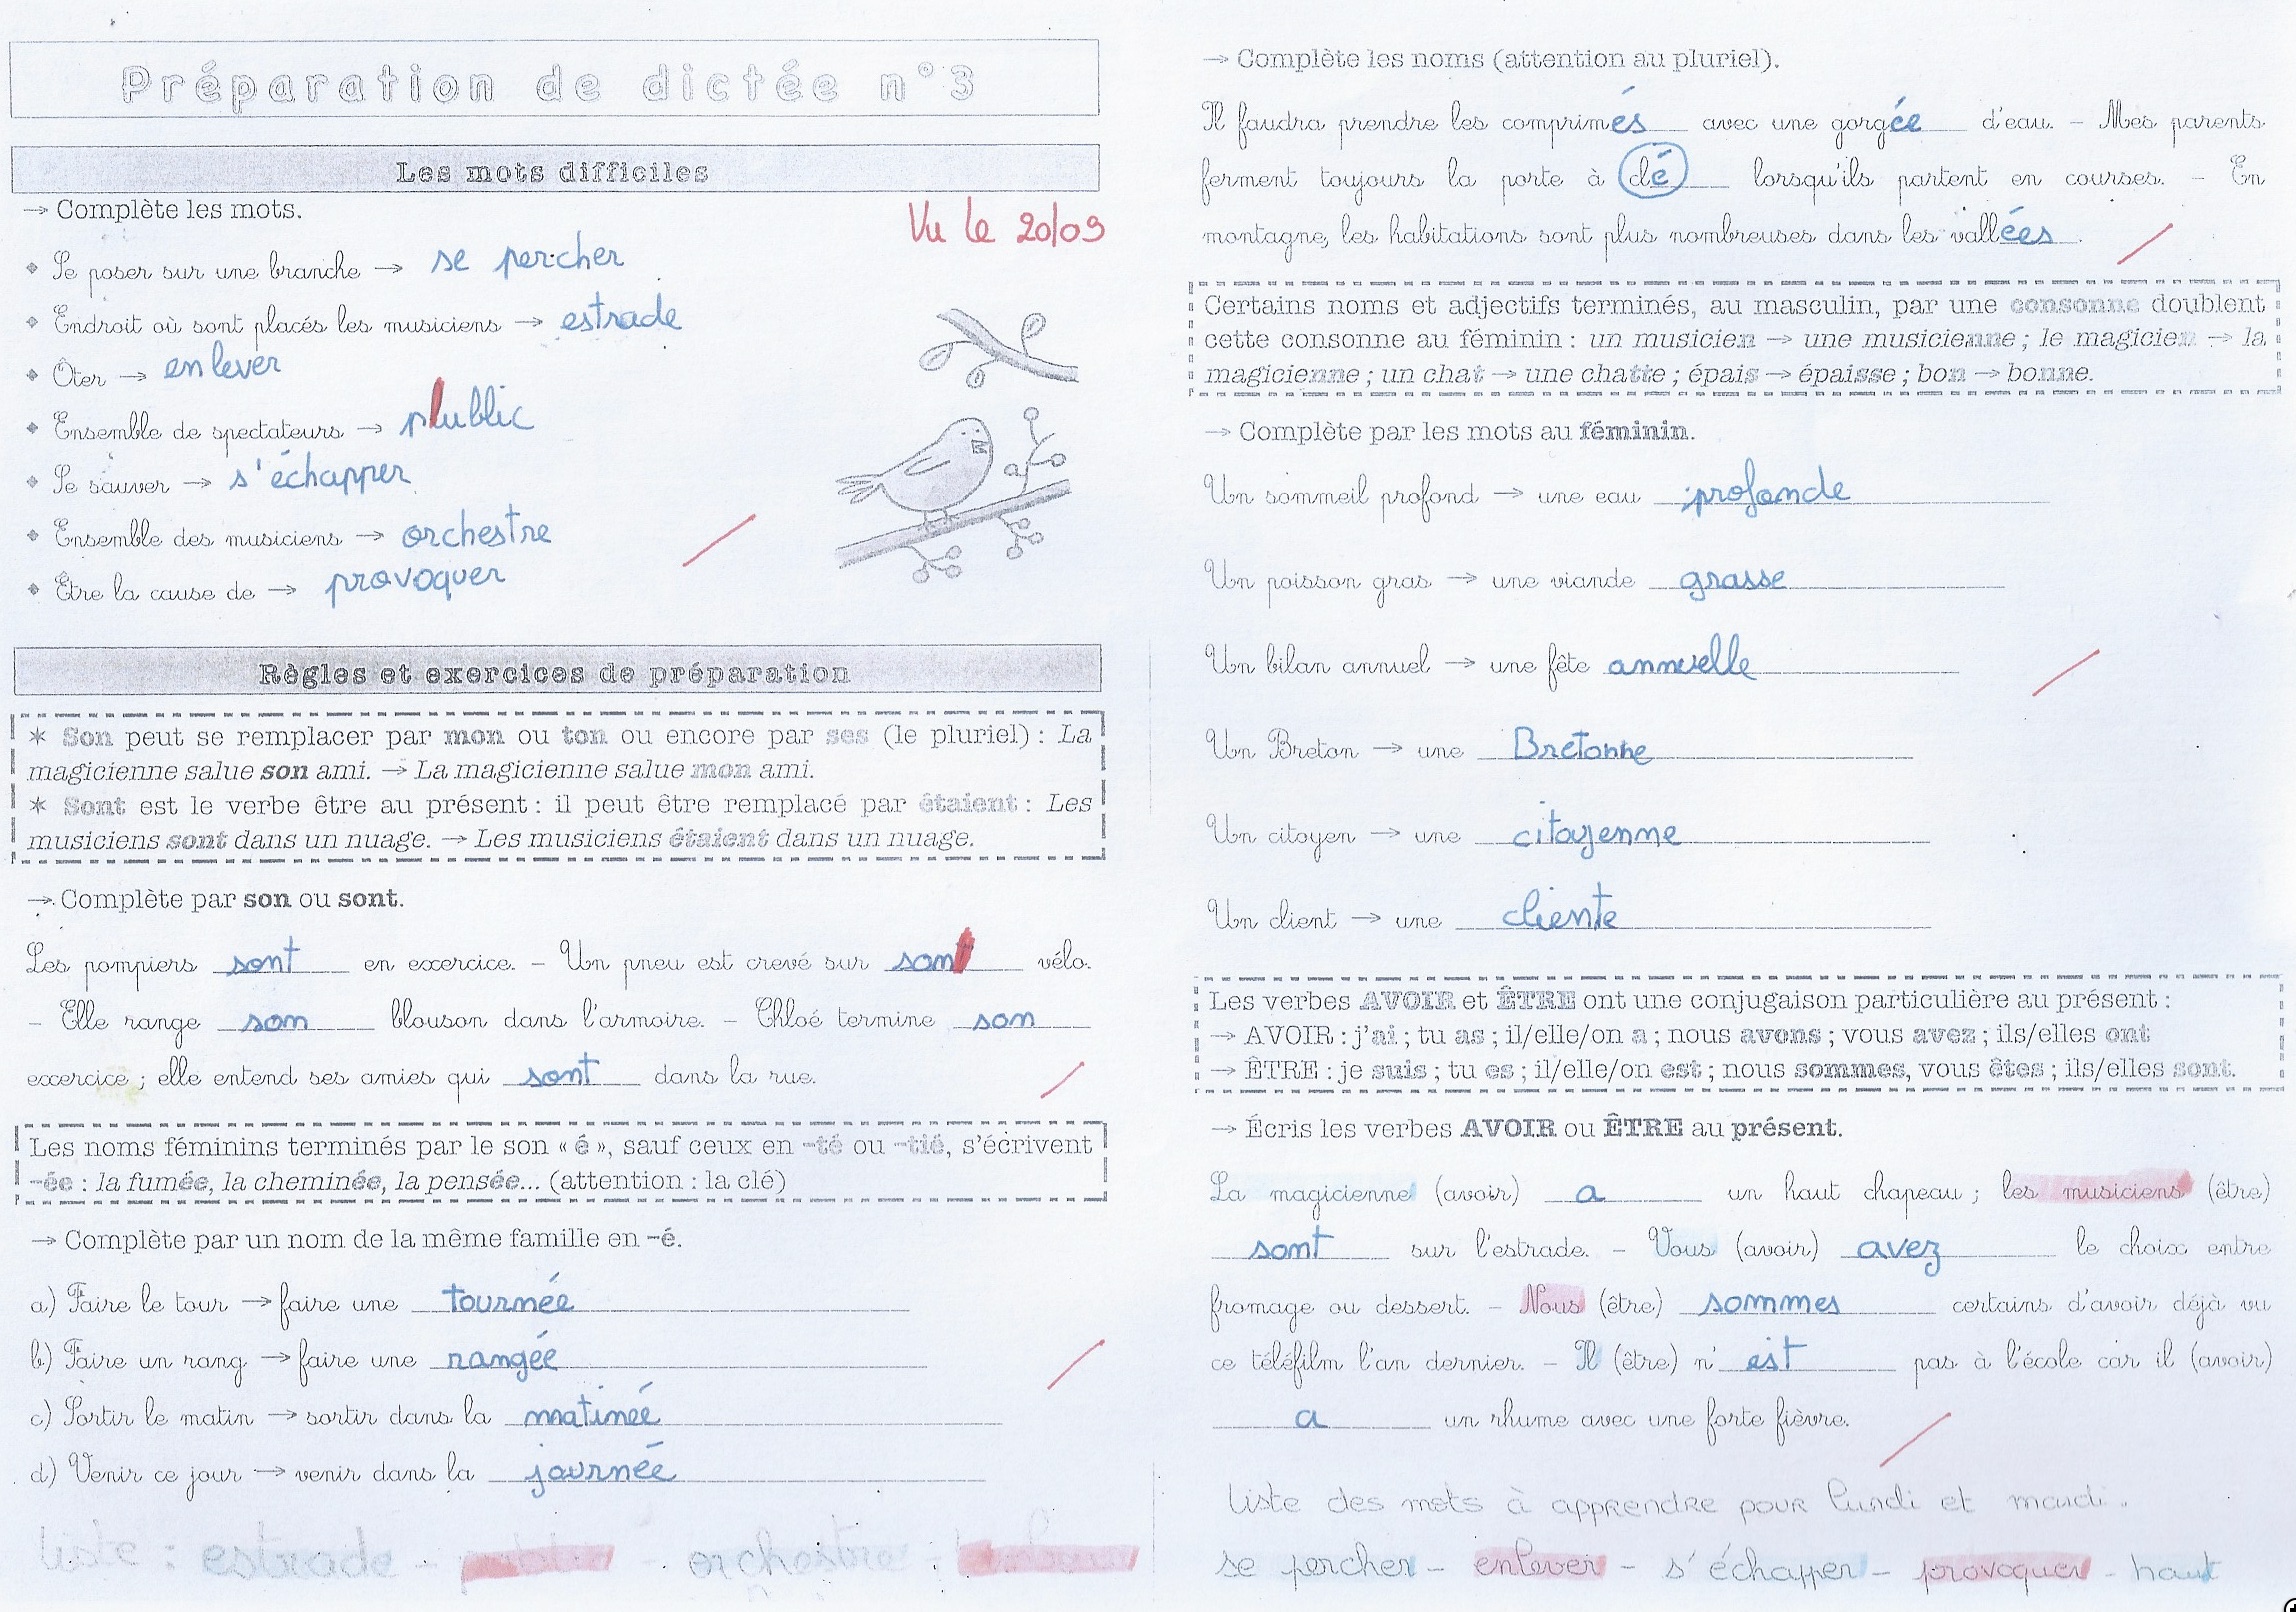 Préparation de dictée n°3
Les mots difficiles
→ Complète les mots.
Vu le 20/09
◆ Se poser sur une branche → se percher
◆ Endroit où sont placés les musiciens → estrade
◆ Ôter → enlever
◆ Ensemble de spectateurs → public
◆ Se sauver → s'échapper
◆ Ensemble des musiciens → orchestre
◆ Être la cause de → provoquer
Règles et exercices de préparation
* Son peut se remplacer par mon ou ton ou encore par ses (le pluriel) : La
magicienne salue son ami. → La magicienne salue mon ami.
* Sont est le verbe être au présent : il peut être remplacé par étaient : Les
musiciens sont dans un nuage. → Les musiciens étaient dans un nuage.
→ Complète par son ou sont.
Les pompiers sont en exercice. – Un pneu est crevé sur son vélo.
– Elle range son blouson dans l'armoire. – Chloé termine son
exercice ; elle entend ses amies qui sont dans la rue.
Les noms féminins terminés par le son « é », sauf ceux en -té ou -tié, s'écrivent
-ée : la fumée, la cheminée, la pensée... (attention : la clé)
→ Complète par un nom de la même famille en -é.
a) Faire le tour → faire une tournée
b) Faire un rang → faire une rangée
c) Sortir le matin → sortir dans la matinée
d) Venir ce jour → venir dans la journée
liste : estrade - - orchestre -
→ Complète les noms (attention au pluriel).
Il faudra prendre les comprimés avec une gorgée d'eau. – Mes parents
ferment toujours la porte à clé lorsqu'ils partent en courses. – En
montagne, les habitations sont plus nombreuses dans les vallées.
Certains noms et adjectifs terminés, au masculin, par une consonne doublent
cette consonne au féminin : un musicien → une musicienne ; le magicien → la
magicienne ; un chat → une chatte ; épais → épaisse ; bon → bonne.
→ Complète par les mots au féminin.
Un sommeil profond → une eau profonde
Un poisson gras → une viande grasse
Un bilan annuel → une fête annuelle
Un Breton → une Bretonne
Un citoyen → une citoyenne
Un client → une cliente
Les verbes AVOIR et ÊTRE ont une conjugaison particulière au présent :
→ AVOIR : j'ai ; tu as ; il/elle/on a ; nous avons ; vous avez ; ils/elles ont
→ ÊTRE : je suis ; tu es ; il/elle/on est ; nous sommes, vous êtes ; ils/elles sont.
→ Écris les verbes AVOIR ou ÊTRE au présent.
La magicienne (avoir) a un haut chapeau ; les musiciens (être)
sont sur l'estrade. – Vous (avoir) avez le choix entre
fromage ou dessert. – Nous (être) sommes certains d'avoir déjà vu
ce téléfilm l'an dernier. – Il (être) n'est pas à l'école car il (avoir)
a un rhume avec une forte fièvre.
liste des mots à apprendre pour lundi et mardi.
se percher - enlever - s'échapper - provoquer - haut